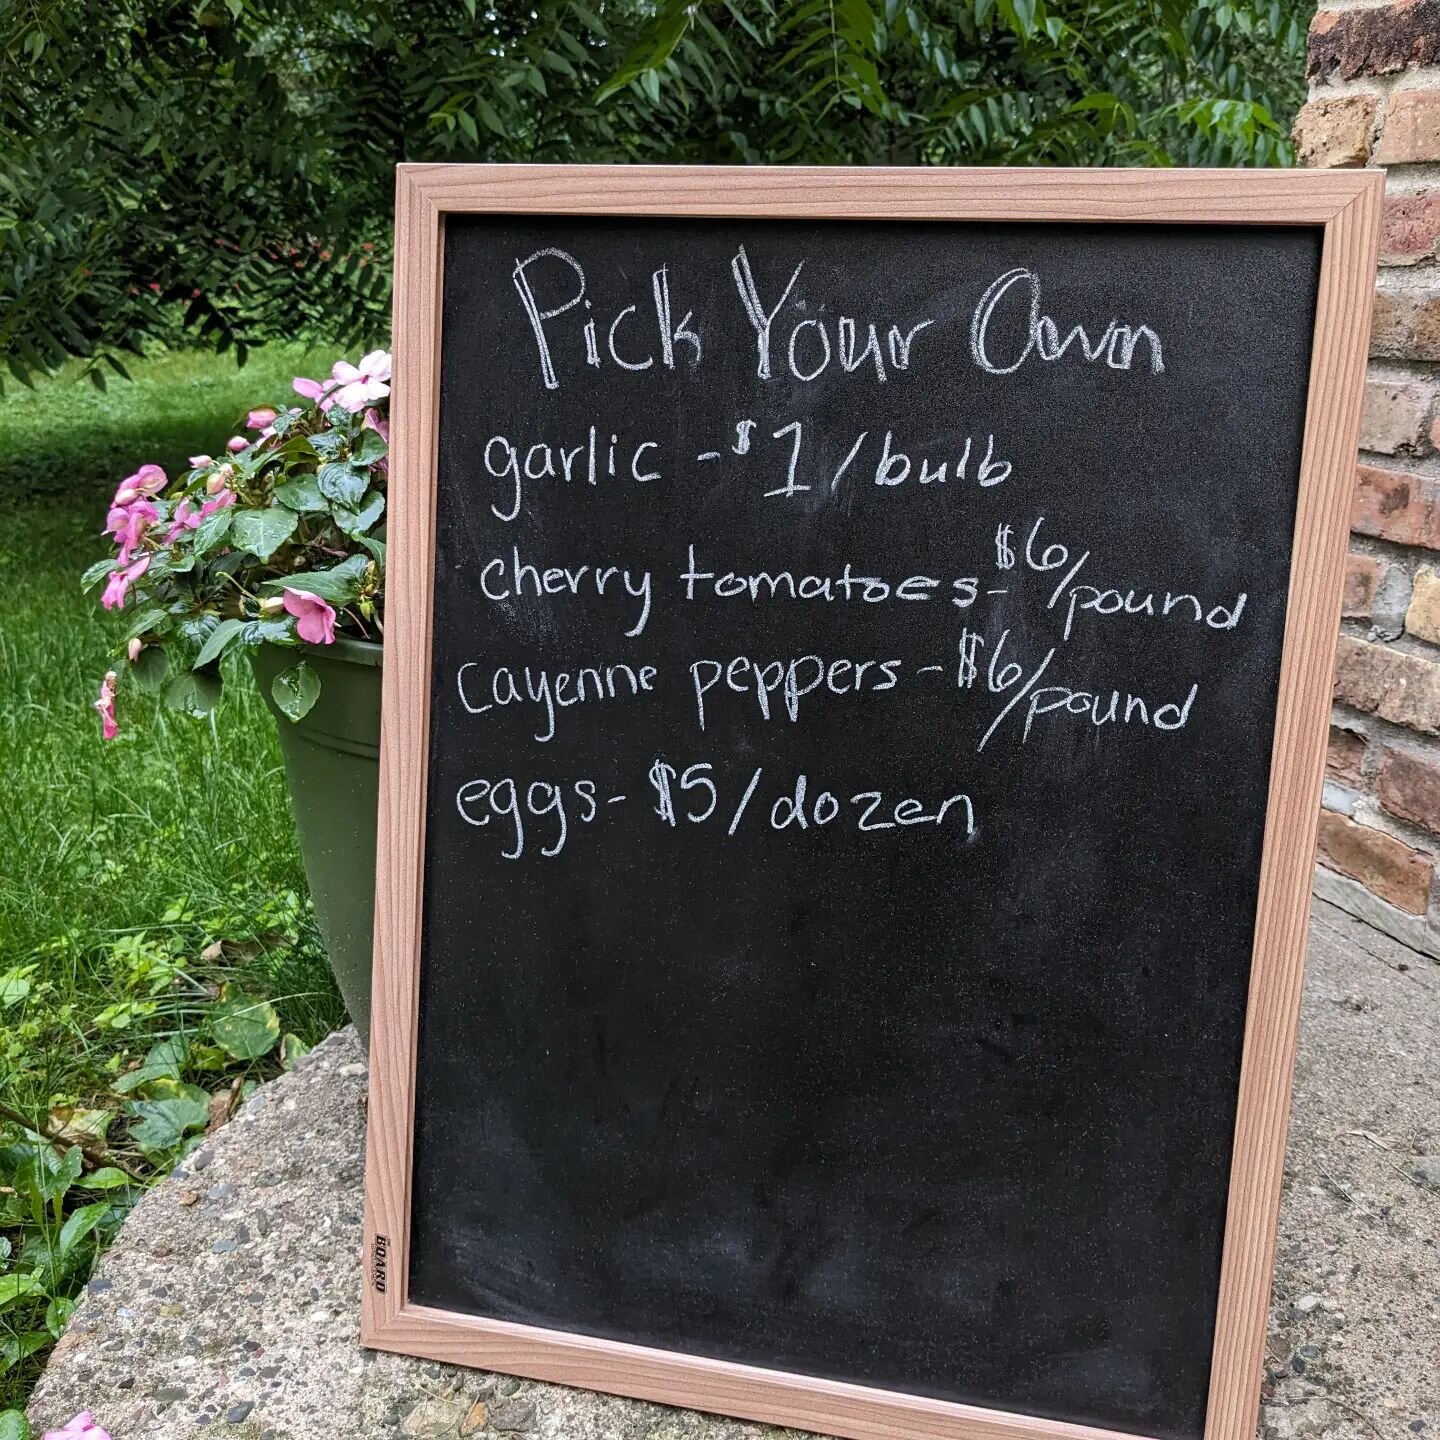 Pick Your Own
garlic - $1/bulb
cherry tomatoes - $6/pound
cayenne peppers - $6/pound
eggs - $5/dozen
BOARD